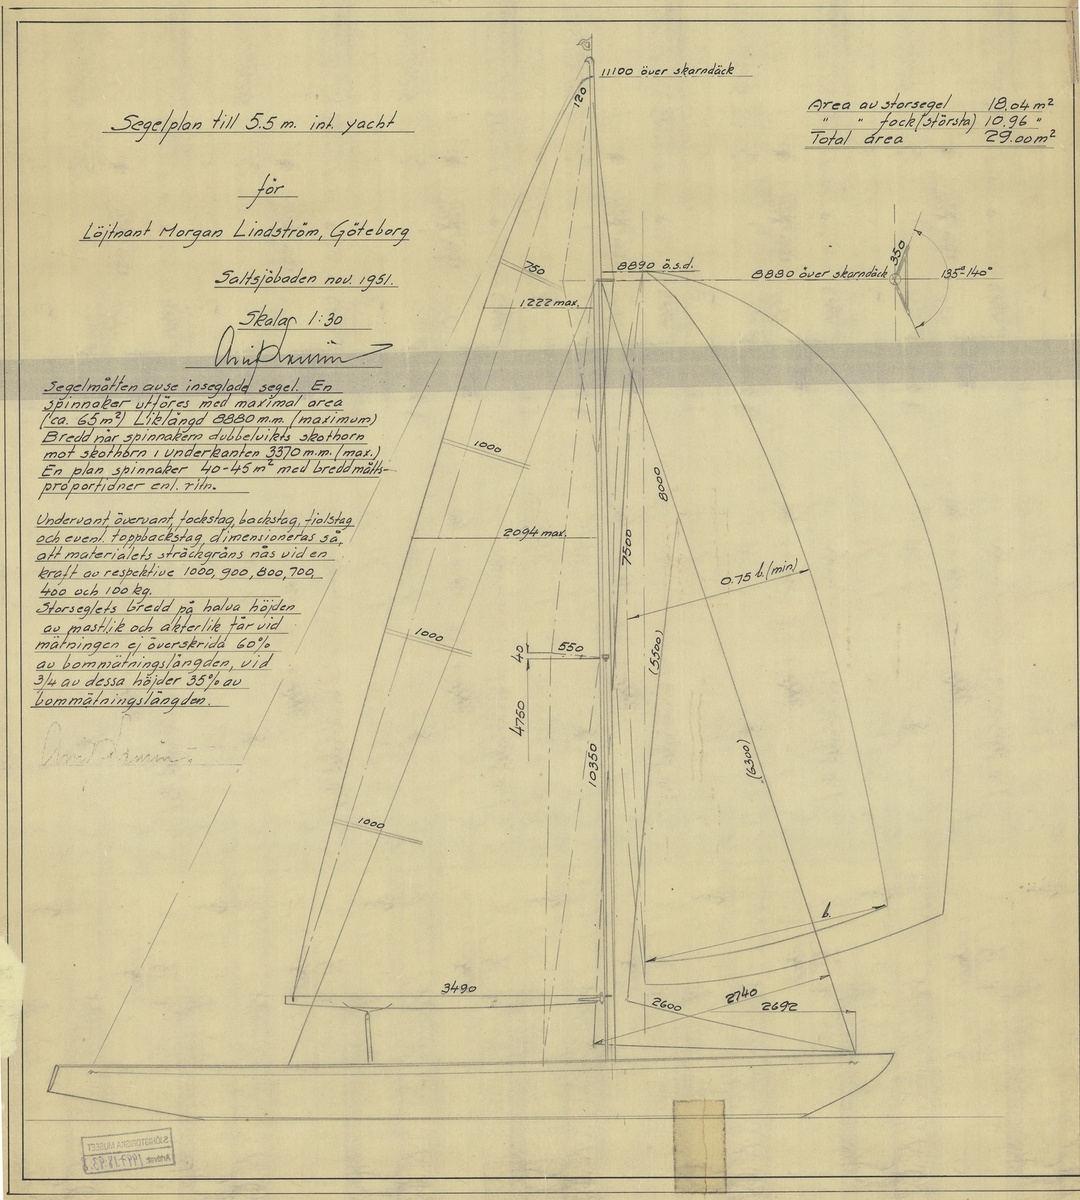 Segelplan till 5.5 m. int. yacht
för
Löjtnant Morgan Lindström, Göteborg
Saltsjöbaden nov. 1951.
Skala 1:30
Segelmåtten avse inseglade segel. En
spinnaker utföres med maximal area
(ca. 65 m²) Liklängd 8880 m.m. (maximum)
Bredd när spinnakern dubbelvikts skothorn
mot skothorn i underkanten 3370 m.m. (max.)
En plan spinnaker 40-45 m² med breddmåtts-
proportioner enl. ritn.
Undervant, övervant, fockstag, backstag, fiolstag
och event. toppbackstag dimensioneras så,
att materialets sträckgräns nås vid en
kraft av respektive 1000, 900, 800, 700,
400 och 100 kg.
Storseglets bredd på halva höjden
av mastlik och akterlik får vid
mätningen ej överskrida 60%
av bommätningslängden, vid
3/4 av dessa höjder 35% av
bommätningslängden.
11100 över skarndäck
120
Area av storsegel 18.04 m²
" " fock (största) 10.96 "
Total area 29.00 m²
8890 ö.s.d.
8880 över skarndäck
350
135° 140°
750
1222 max.
1000
2094 max.
1000
1000
8000
7500
0.75 b. (min)
(5500)
550
40
4750
10350
(6300)
b.
3490
2600
2740
2692
SJÖHISTORISKA MUSEET